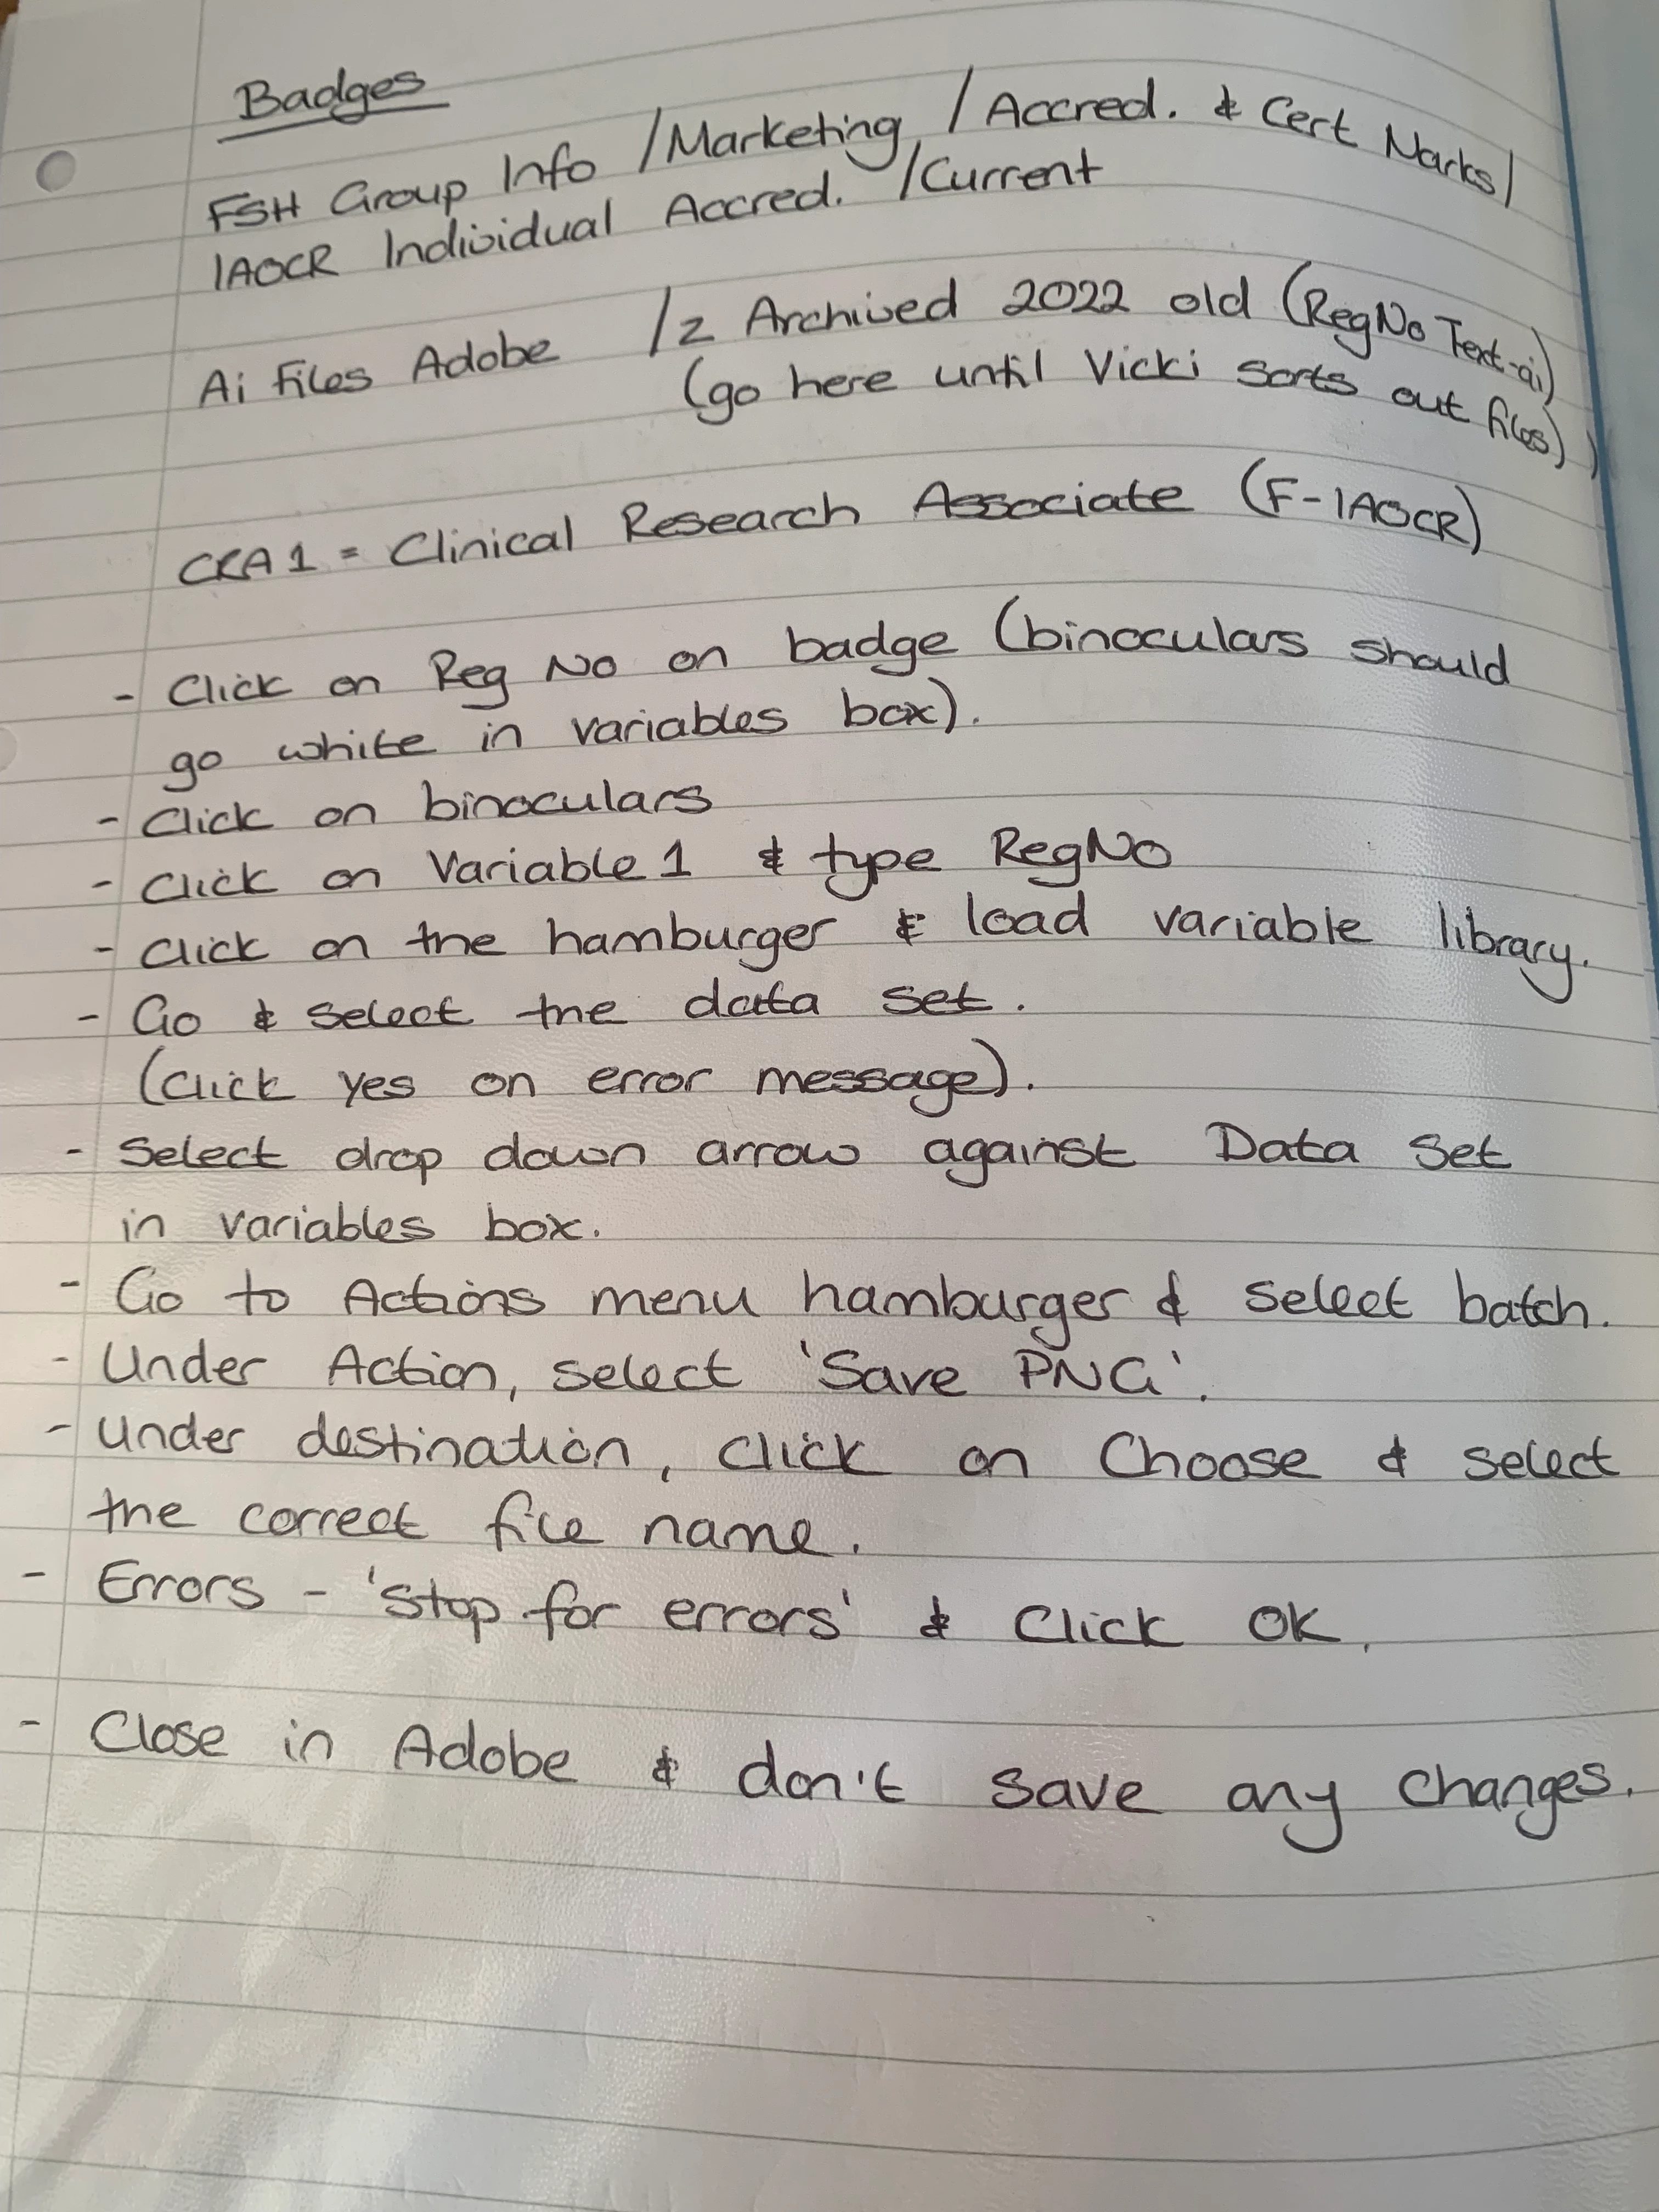 Badges
FSH Group Info / Marketing / Accred. & Cert Marks /
IAOCR Individual Accred. / Current
Ai Files Adobe / z Archived 2022 old (RegNo Text-ai)
(go here until Vicki sorts out files)
CRA1 = Clinical Research Associate (F-IAOCR)
- Click on Reg No on badge (binoculars should
go white in variables box).
- Click on binoculars
- Click on Variable 1 & type RegNo
- Click on the hamburger & load variable library.
- Go & select the data set.
(click yes on error message).
- Select drop down arrow against Data Set
in variables box.
- Go to Actions menu hamburger & select batch.
- Under Action, select 'Save PNG'.
- Under destination, click on Choose & select
the correct file name.
- Errors - 'Stop for errors' & Click OK.
- Close in Adobe & don't save any changes.